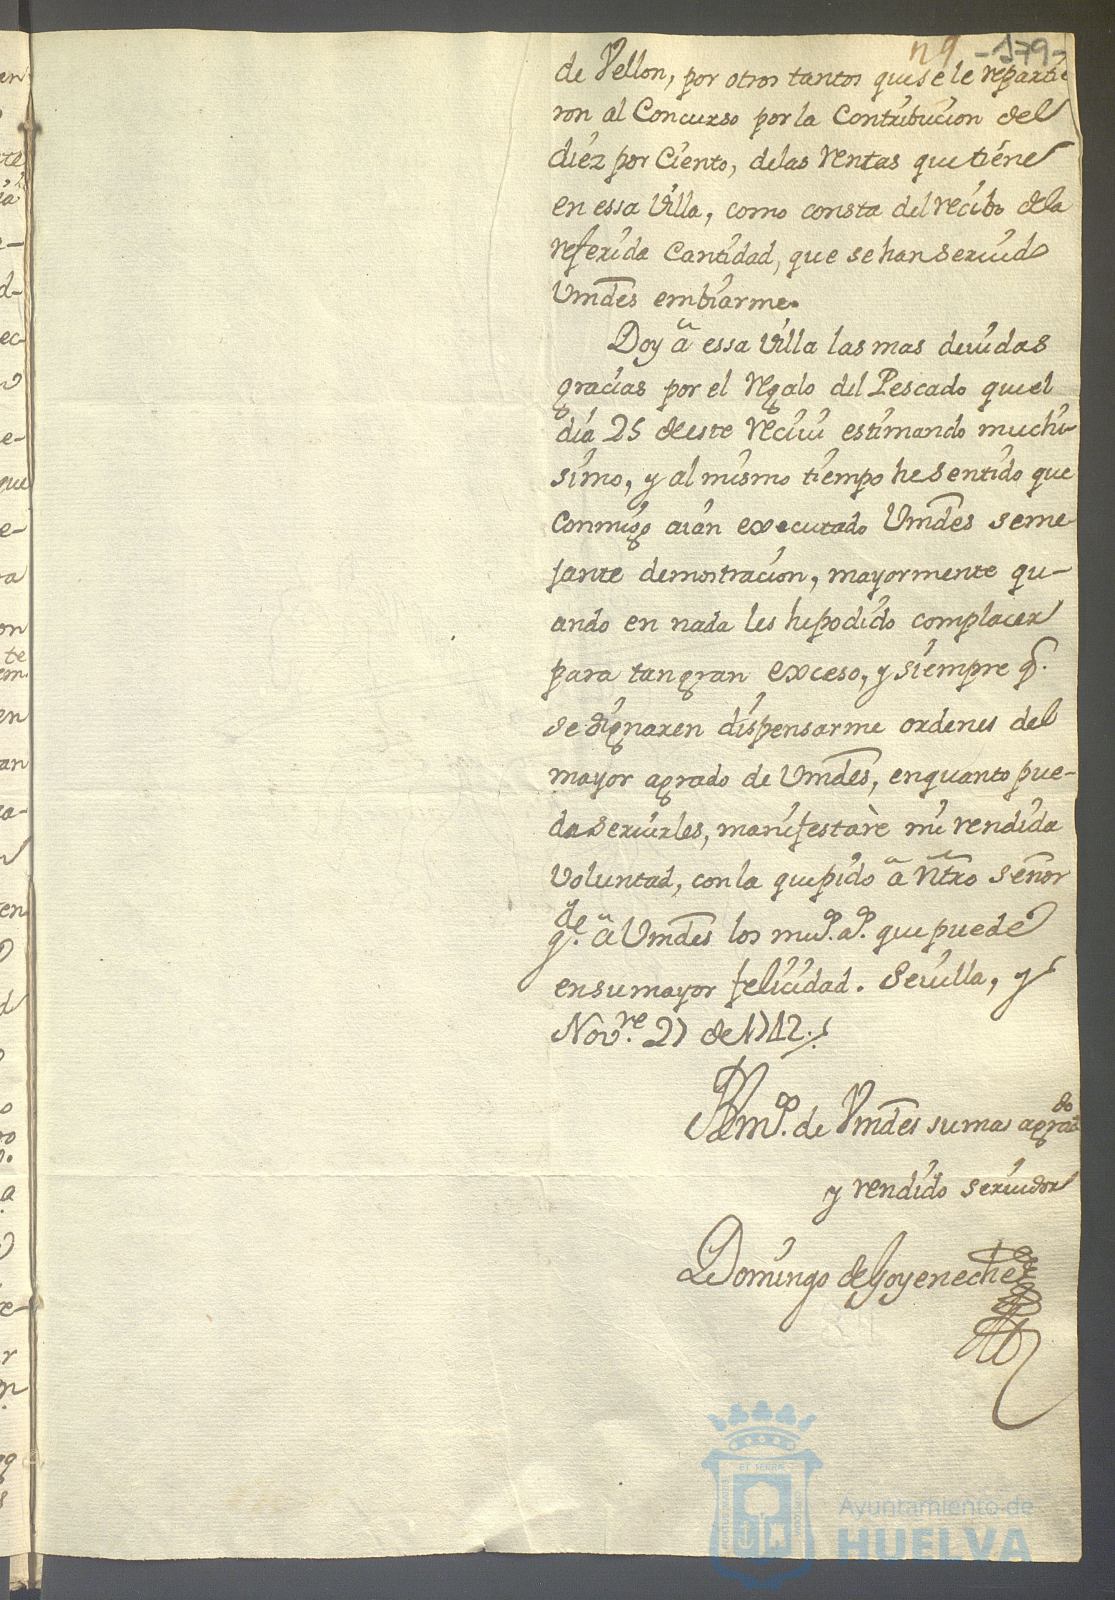 n 9 -179-
de Vellon, por otros tantos que se le reparti
ron al Concurso por la Contribucion del
diez por Ciento, de las Rentas que tiene
en essa Villa, como consta del recibo de la
referida Cantidad, que se han seruido
Vmdes embiarme.
Doy â essa Villa las mas deuidas
gracias por el Regalo del Pescado que el
dia 25 de este Reciui estimando muchi-
simo, y al mismo tiempo he sentido que
conmigo aian executado Vmdes seme
jante demostracion, mayormente qu-
ando en nada les he podido complacer
para tan gran exceso, y siempre q.
se dignaren dispensarme ordenes del
mayor agrado de Vmdes, en quanto pue-
da seruirles, manifestarè mi rendida
voluntad, con la que pido â ntro señor
g.de â Vmdes los mus. as. que puede
en su mayor felicidad. Seuilla, y
Nov.re 27 de 1712.
ms. de Vmdes su mas agrado
y rendido seruidor
Domingo de Goyeneche
en
te
ia
d-
ec
e-
que
e-
ra
on
te
em
en
an
za-
en
d
o
ro
a
e-
r
n
PORTUS MARIS
ET TERRE
CUSTODIA
Ayuntamiento de
HUELVA